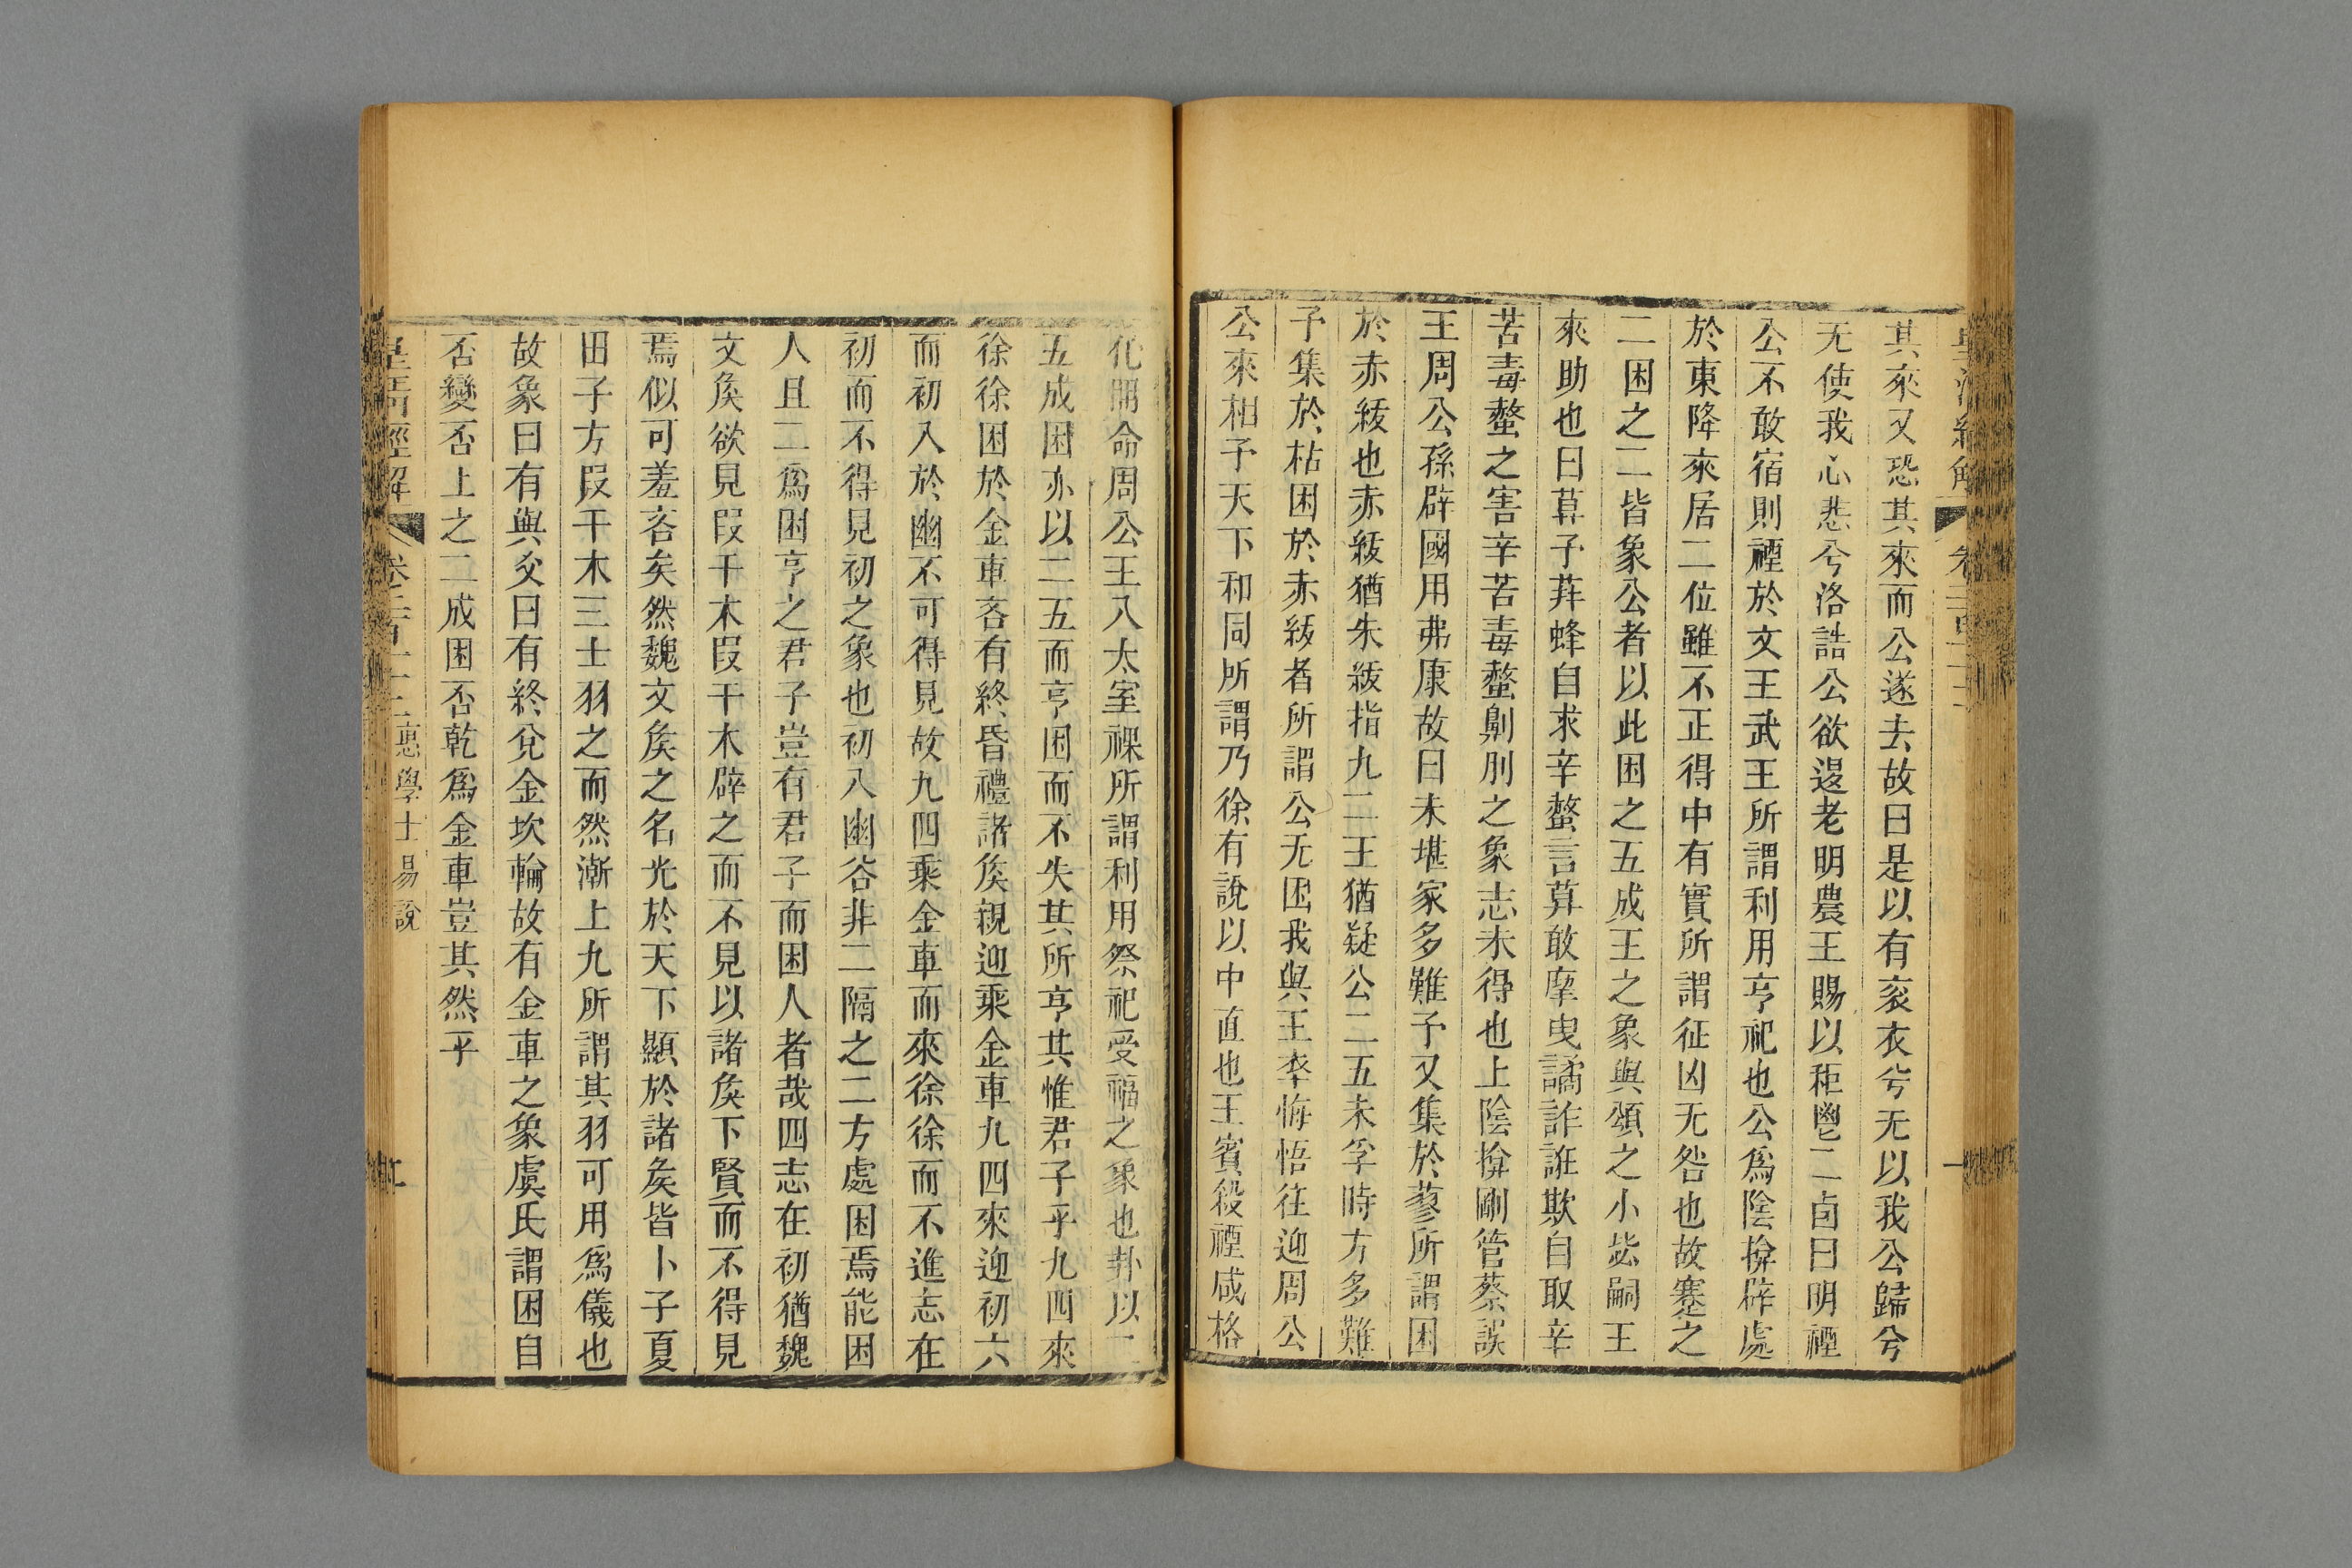 皇清經解
其來又恐其來而公遂去故曰是以有袞衣兮无以我公歸兮
无使我心悲兮洛誥公欲退老明農王賜以秬鬯二卣曰明禋
公不敢宿則禋於文王武王所謂利用亨祀也公爲陰揜辟處
於東降來居二位雖不正得中有實所謂征凶无咎也故蹇之
二困之二皆象公者以此困之五成王之象與頌之小毖嗣王
來助也曰莫予荓蜂自求辛螫言莫敢摩曳譎詐誑欺自取辛
苦毒螫之害辛苦毒螫劓刖之象志未得也上陰揜剛管蔡誤
王周公孫辟國用弗康故曰未堪家多難予又集於蓼所謂困
於赤紱也赤紱猶朱紱指九二王猶疑公二五未孚時方多難
予集於枯困於赤紱者所謂公无困我與王率悔悟往迎周公
公來相予天下和同所謂乃徐有說以中直也王賓殺禋咸格
化開命周公王入太室祼所謂利用祭祀受福之象也卦以二
五成困亦以二五而亨困而不失其所亨其惟君子乎九四來
徐徐困於金車吝有終昏禮諸矦親迎乘金車九四來迎初六
而初入於幽不可得見故九四乘金車而來徐徐而不進志在
初而不得見初之象也初入幽谷非二隔之二方處困焉能困
人且二爲困亨之君子豈有君子而困人者哉四志在初猶魏
文矦欲見段干木段干木辟之而不見以諸矦下賢而不得見
焉似可羞吝矣然魏文矦之名光於天下顯於諸矦皆卜子夏
田子方段干木三士羽之而然漸上九所謂其羽可用爲儀也
故象曰有與爻曰有終兌金坎輪故有金車之象虞氏謂困自
否變否上之二成困否乾爲金車豈其然乎
經解 惠學士易說